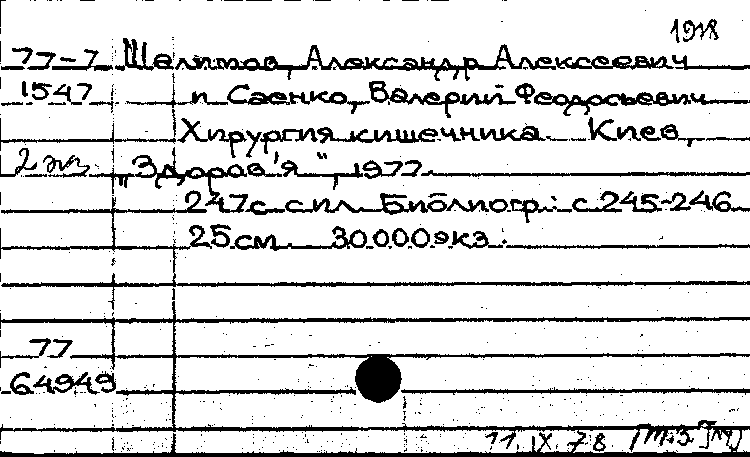 1978
77-7 Шалимов, Александр Алексеевич
1547 и Саенко, Валерий Феодосьевич
Хирургия кишечника. Киев,
2 экз. „Здоров'я“, 1977.
247с. с ил. Библиогр.: с 245-246
25см. 30000экз.
77
64949
11.IX.78